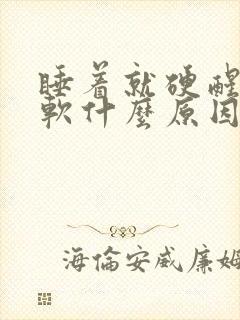 睡着就硬醒
軟什麼原因
海倫安威廉姆